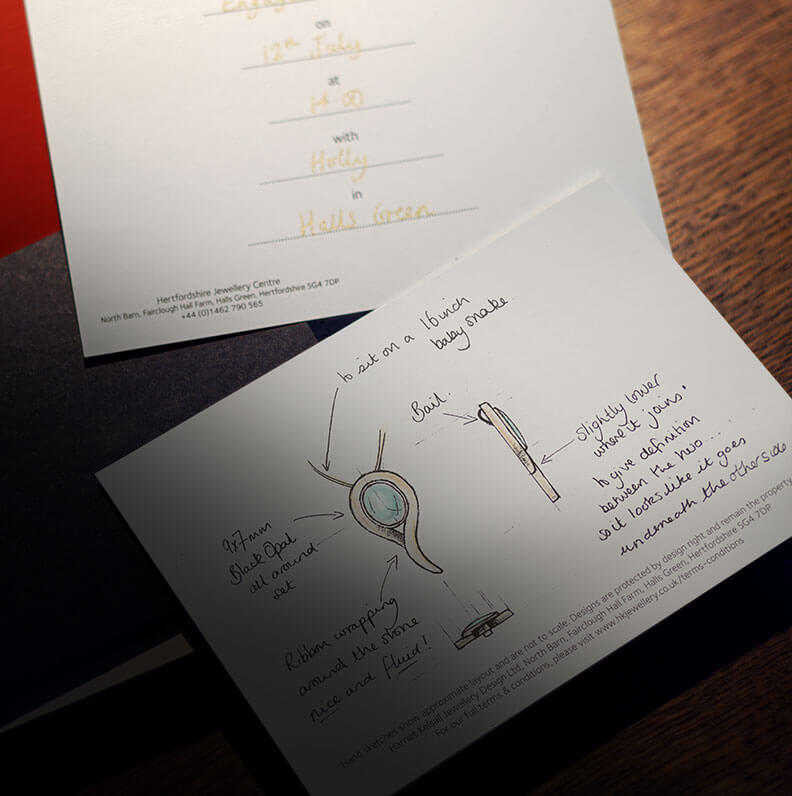 Engag
on
12th July
at
14:00
with
Holly
in
Halls Green
Hertfordshire Jewellery Centre
North Barn, Fairclough Hall Farm, Halls Green, Hertfordshire SG4 7DP
+44 (0)1462 790 565
to sit on a 16 inch
baby snake
Bail.
slightly lower
where it joins.
to give definition
between the two....
so it looks like it goes
underneath the other side
9x7mm
Black Opal
all around
set
Ribbon wrapping
around the stone
nice and fluid!
Hand sketches show approximate layout and are not to scale. Designs are protected by design right and remain the property
Harriet Kelsall Jewellery Design Ltd, North Barn, Fairclough Hall Farm, Halls Green, Hertfordshire SG4 7DP
For our full terms & conditions, please visit www.hkjewellery.co.uk/terms-conditions